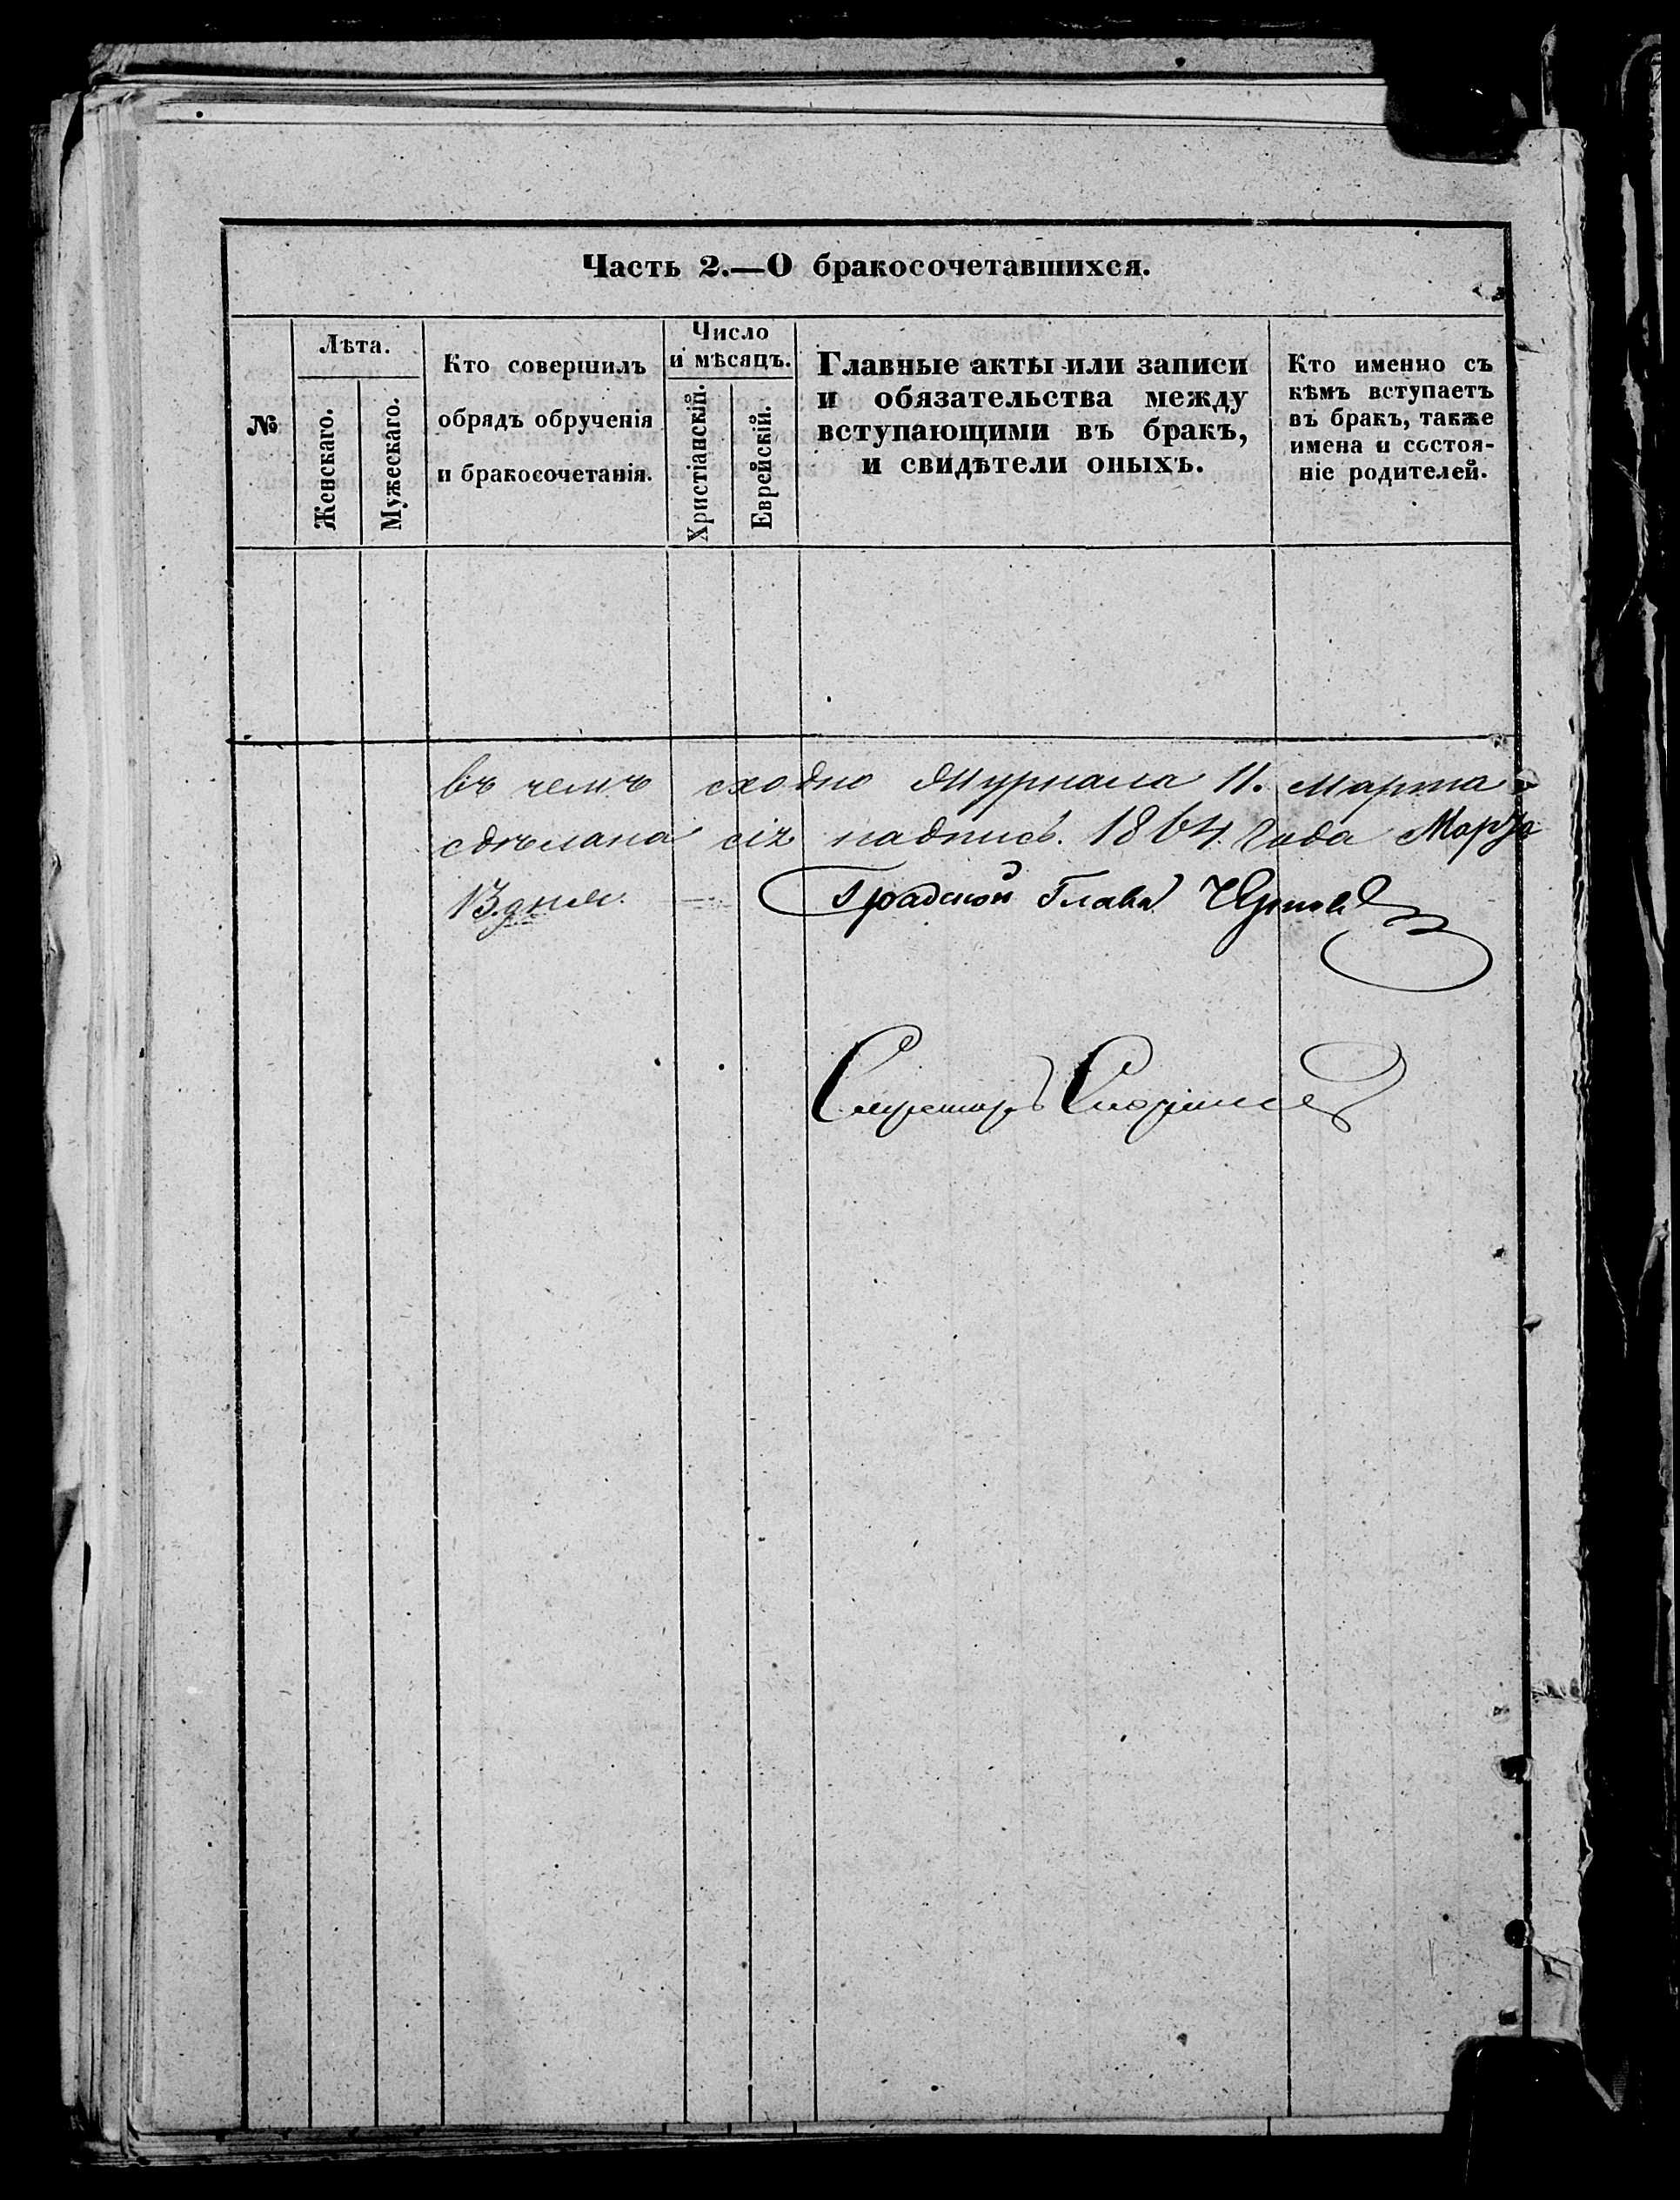 Часть 2.—О бракосочетавшихся.
№
Лѣта.
Женскаго.
Мужескаго.
Кто совершилъ
обрядъ обрученія
и бракосочетанія.
Число
и мѣсяцъ.
Христіанскій.
Еврейскій.
Главные акты или записи
и обязательства между
вступающими въ бракъ,
и свидѣтели оныхъ.
Кто именно съ
кѣмъ вступаетъ
въ бракъ, также
имена и состоя-
ніе родителей.
въ чемъ сходно Журнала 11. Марта
сдѣлана сія надпись. 1864. Года Марта
13 дня. —
Градской Глава
Секретарь